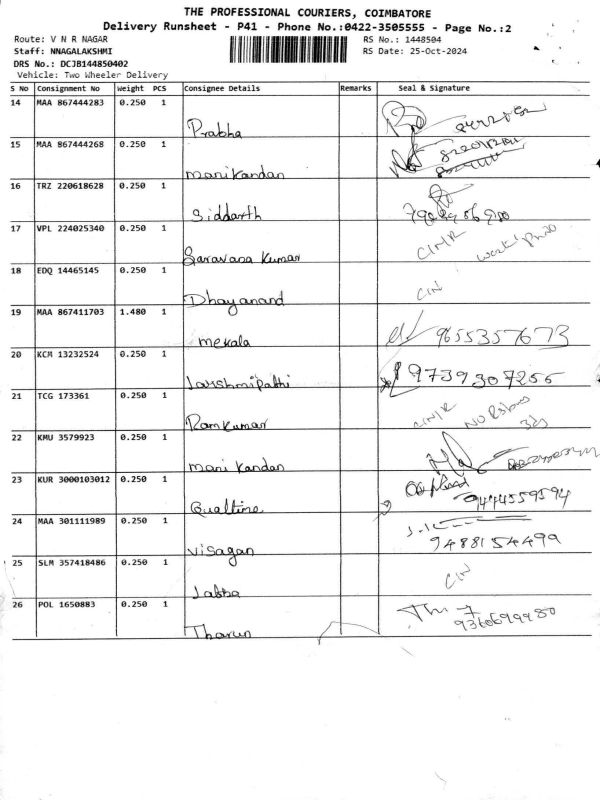 THE PROFESSIONAL COURIERS, COIMBATORE
Delivery Runsheet - P41 - Phone No.:0422-3505555 - Page No.:2
Route: V N R NAGAR RS No.: 1448504
Staff: NNAGALAKSHMI RS Date: 25-Oct-2024
DRS No.: DCJB144850402
Vehicle: Two Wheeler Delivery
S No Consignment No Weight PCS Consignee Details Remarks Seal & Signature
14 MAA 867444283 0.250 1
Prabha
15 MAA 867444268 0.250 1
manikandan
16 TRZ 220618628 0.250 1
Siddarth
17 VPL 224025340 0.250 1
Saravana Kumar
18 EDQ 14465145 0.250 1
Dhayanand CIN
19 MAA 867411703 1.480 1
mekala 9655357673
20 KCM 13232524 0.250 1
Lakshmipathi 9739307256
21 TCG 173361 0.250 1
Ramkumar
22 KMU 3579923 0.250 1
mani kandan
23 KUR 3000103012 0.250 1
Qualtine 9444559594
24 MAA 301111989 0.250 1
visagan 9488154499
25 SLM 357418486 0.250 1
CIN
26 POL 1650883 0.250 1
Tharun 9360699980